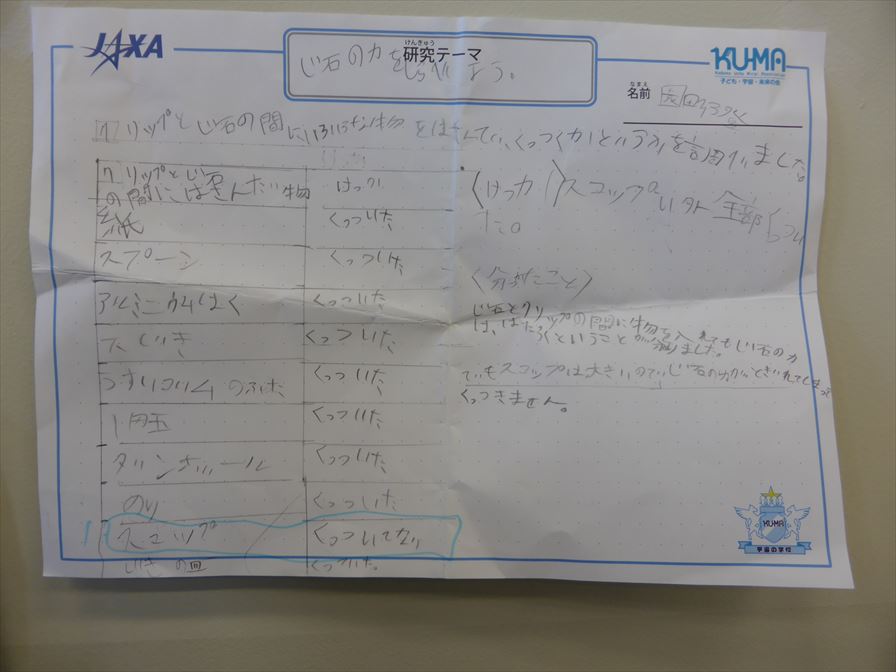 JAXA
けんきゅう
研究テーマ
じ石の力をしらべよう。
KU-MA
子ども・宇宙・未来の会
なまえ
名前
クリップとじ石の間にいろいろな物をはさんでくっつくかどうかを調べました。
クリップとじ石の間にはさんだ物 けっか
紙 くっついた
スプーン くっついた
アルミニウムはく くっついた
くっついた
のふた くっついた
1円玉 くっついた
ダンボール くっついた
のり くっついた
スコップ くっついてない
くっついた。
〈けっか〉スコップい外全部くっついた。
〈分かったこと〉
じ石とクリップの間に物を入れてもじ石の力
は、はたらくということが分りました。
でもスコップは大きいので、じ石の力がとぎれてしまって
くっつきません。
KUMA
宇宙の学校